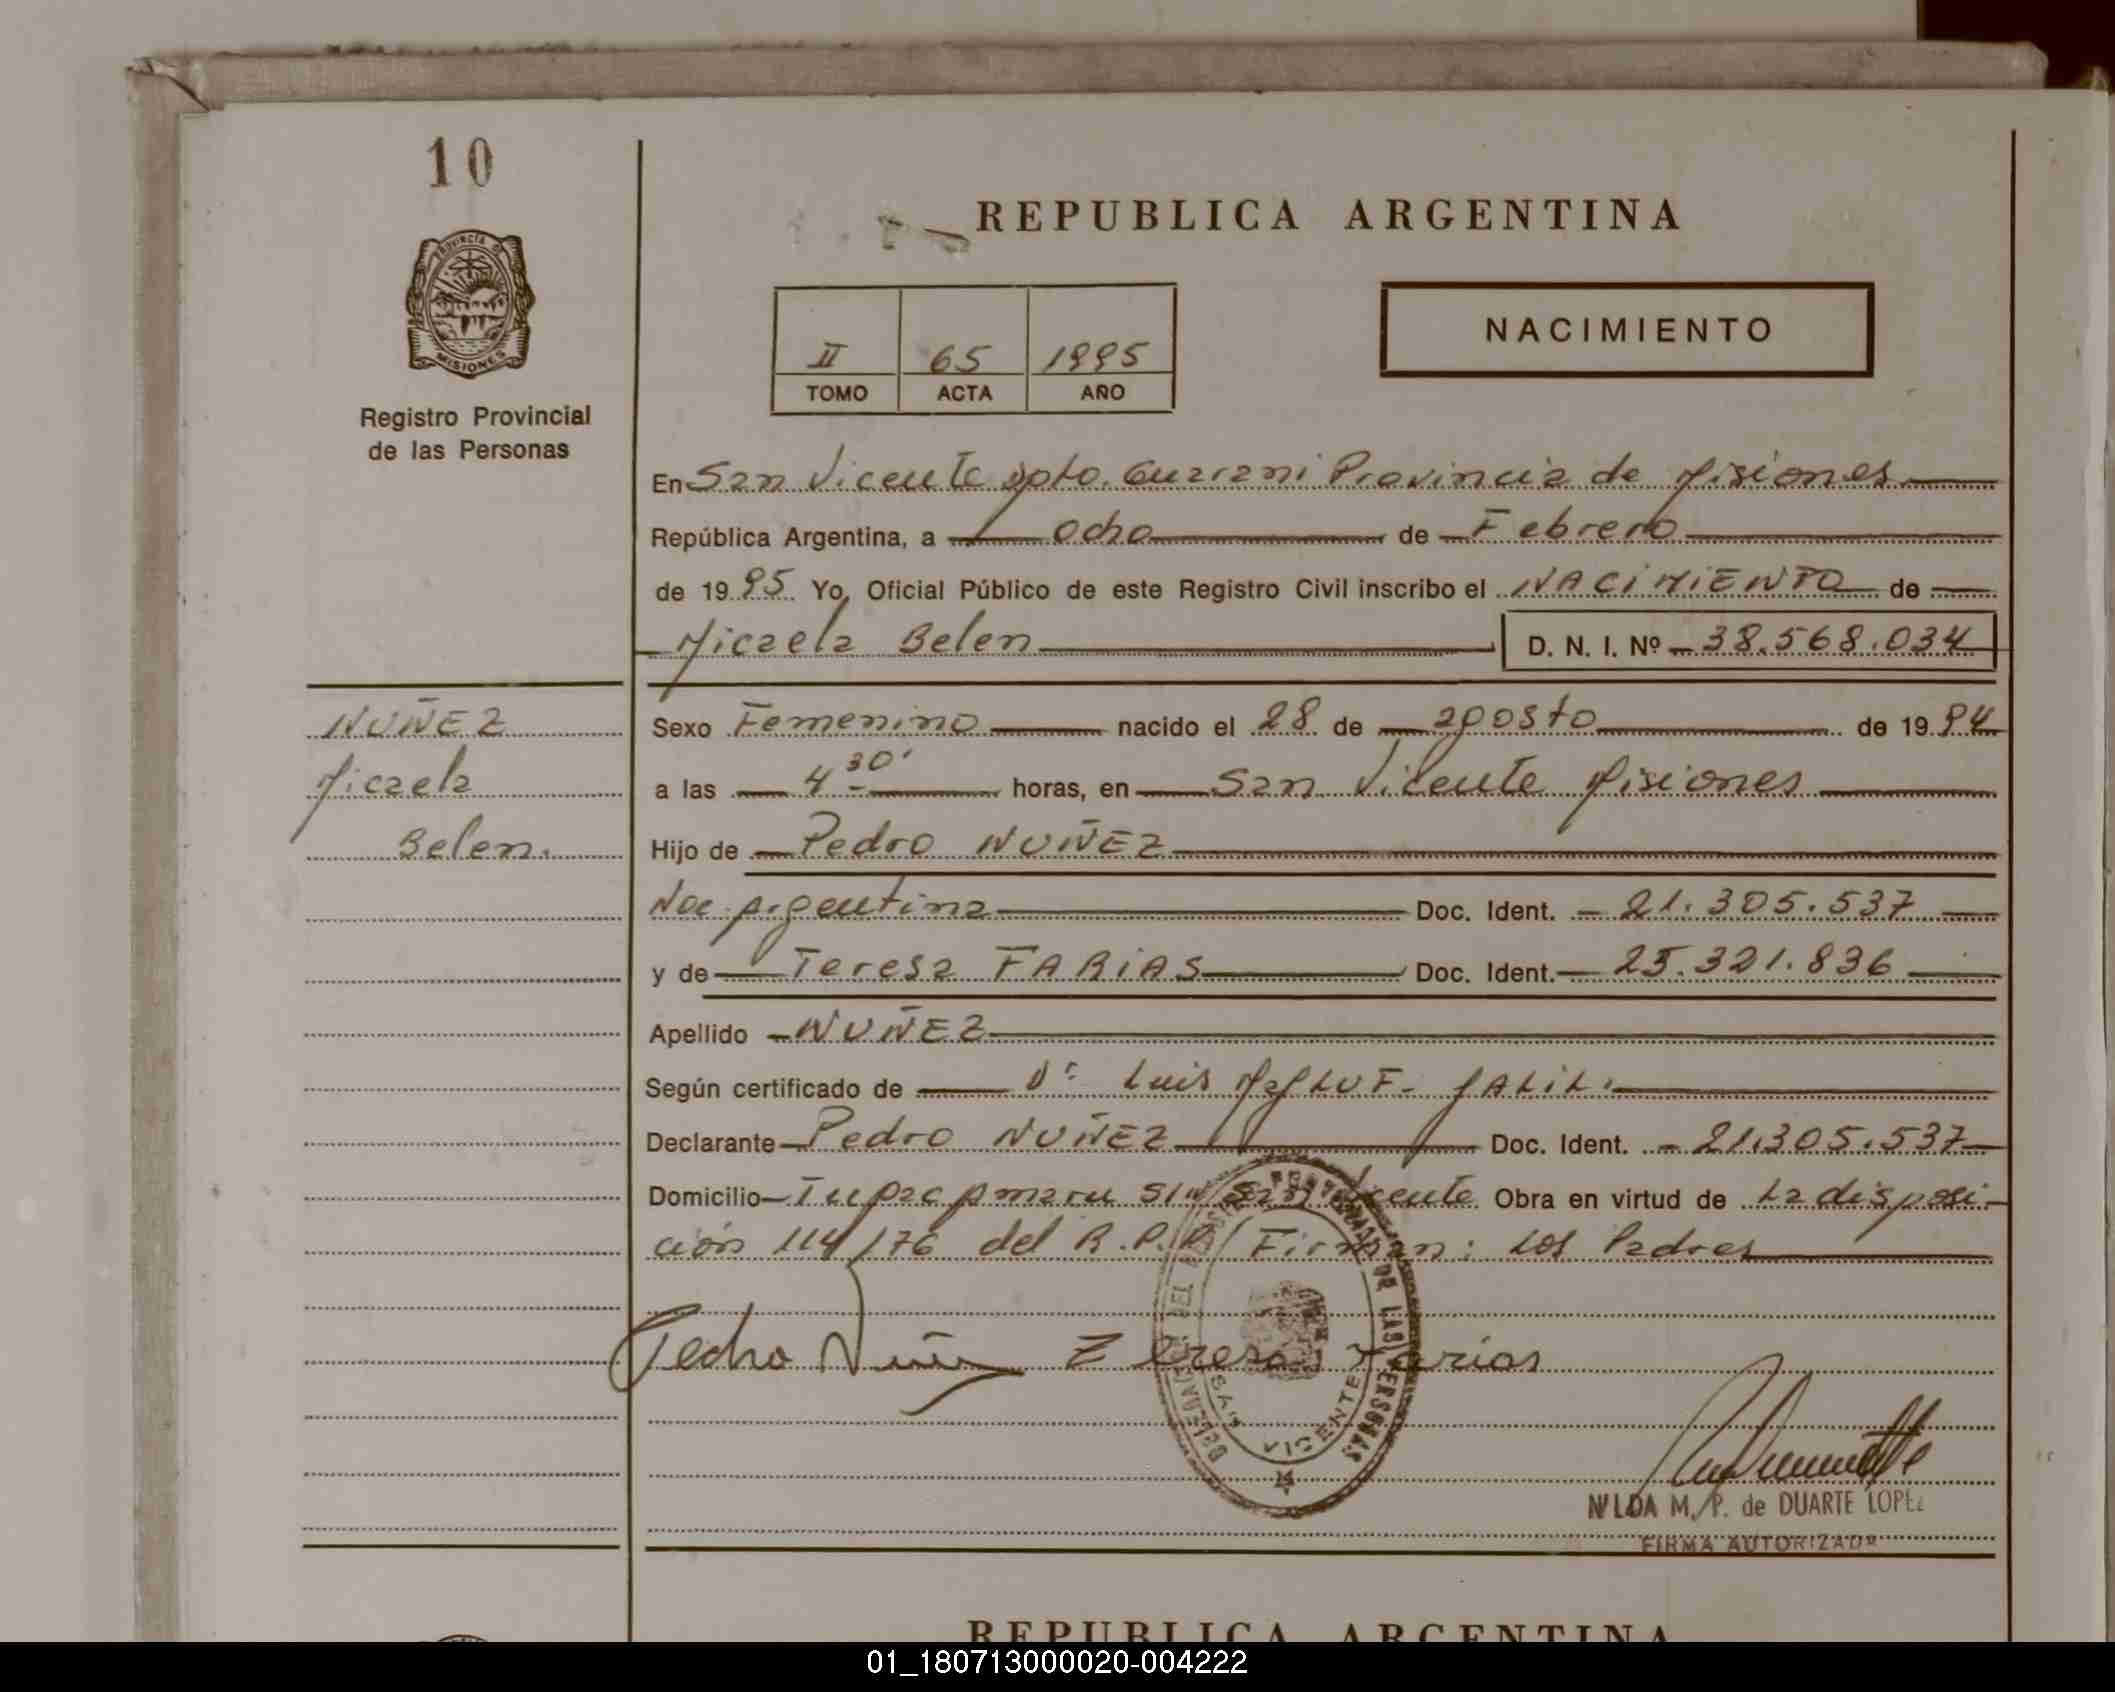 10
PROVINCIA D
MISIONES
Registro Provincial
de las Personas
REPUBLICA ARGENTINA
II 65 1995
TOMO ACTA AÑO
NACIMIENTO
En San Vicente Dpto. Guarani Provincia de Misiones
República Argentina, a ocho de Febrero
de 1995 Yo, Oficial Público de este Registro Civil inscribo el NACIMIENTO de
Micaela Belen D. N. I. Nº 38.568.034
NUÑEZ
Micaela
Belen.
Sexo Femenino nacido el 28 de agosto de 1994
a las 4 30' horas, en San Vicente Misiones
Hijo de Pedro NUÑEZ
Nac. Argentina Doc. Ident. 21.305.537
y de Teresa FARIAS Doc. Ident. 25.321.836
Apellido NUÑEZ
Según certificado de Dr. Luis JALIL.
Declarante Pedro NUÑEZ Doc. Ident. 21.305.537
Domicilio Tupac Amaru S/N San Vicente Obra en virtud de La disposi-
ción 114/76 del R.P.P. Firman: Los Padres
Pedro Nuñez Teresa Farias
DE LAS PERSONAS
SAN VICENTE
NILDA M. P. de DUARTE LOPEZ
FIRMA AUTORIZADA
REPUBLICA ARGENTINA
01_180713000020-004222